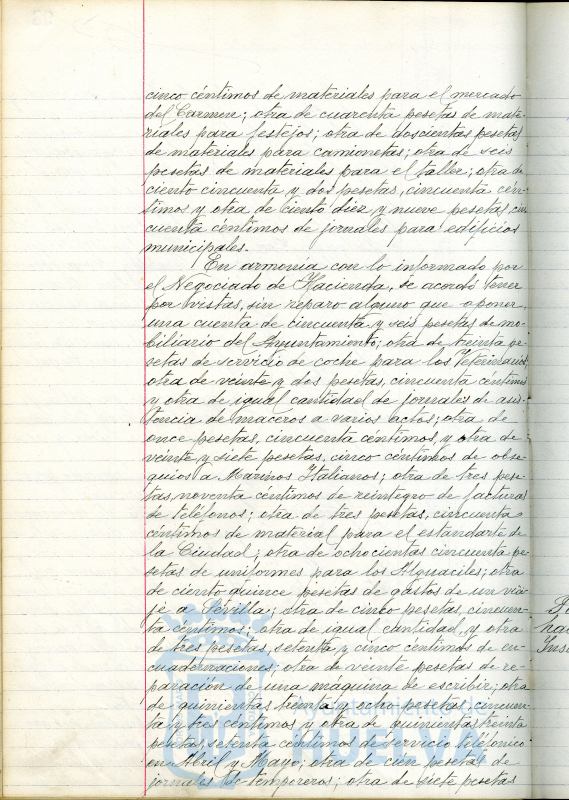 cinco céntimos de materiales para el mercado
del Carmen; otra de cuarenta pesetas de mate-
riales para festejos; otra de doscientas pesetas
de materiales para camionetas; otra de seis
pesetas de materiales para el taller; otra de
ciento cincuenta y dos pesetas, cincuenta cén-
timos y otra de ciento diez y nueve pesetas, cin
cuenta céntimos de jornales para edificios
municipales.
En armonía con lo informado por
el Negociado de Hacienda, se acordó tener
por vistas, sin reparo alguno que oponer,
una cuenta de cincuenta y seis pesetas de mo-
biliario del Ayuntamiento; otra de treinta pe-
setas de servicio de coche para los Veterinarios;
otra de veinte y dos pesetas, cincuenta céntimos
y otra de igual cantidad de jornales de asis-
tencia de maceros a varios actos; otra de
once pesetas, cincuenta céntimos, y otra de
veinte y siete pesetas, cinco céntimos de obse-
quios a Marinos Italianos; otra de tres pese-
tas, noventa céntimos de reintegro de facturas
de teléfonos; otra de tres pesetas, cincuenta
céntimos de material para el estandarte de
la Ciudad; otra de ochocientas cincuenta pe-
setas de uniformes para los Alguaciles; otra
de ciento quince pesetas de gastos de un via-
je a Sevilla; otra de cinco pesetas, cincuen-
ta céntimos; otra de igual cantidad, y otra
de tres pesetas, setenta y cinco céntimos de en-
cuadernaciones; otra de veinte pesetas de re-
paración de una máquina de escribir; otra
de quinientas treinta y ocho pesetas, cincuen-
ta y tres céntimos y otra de quinientas treinta
pesetas, setenta céntimos de servicio telefónico
en Abril y Mayo; otra de cien pesetas de
jornales de temporeros; otra de siete pesetas
HUELVA